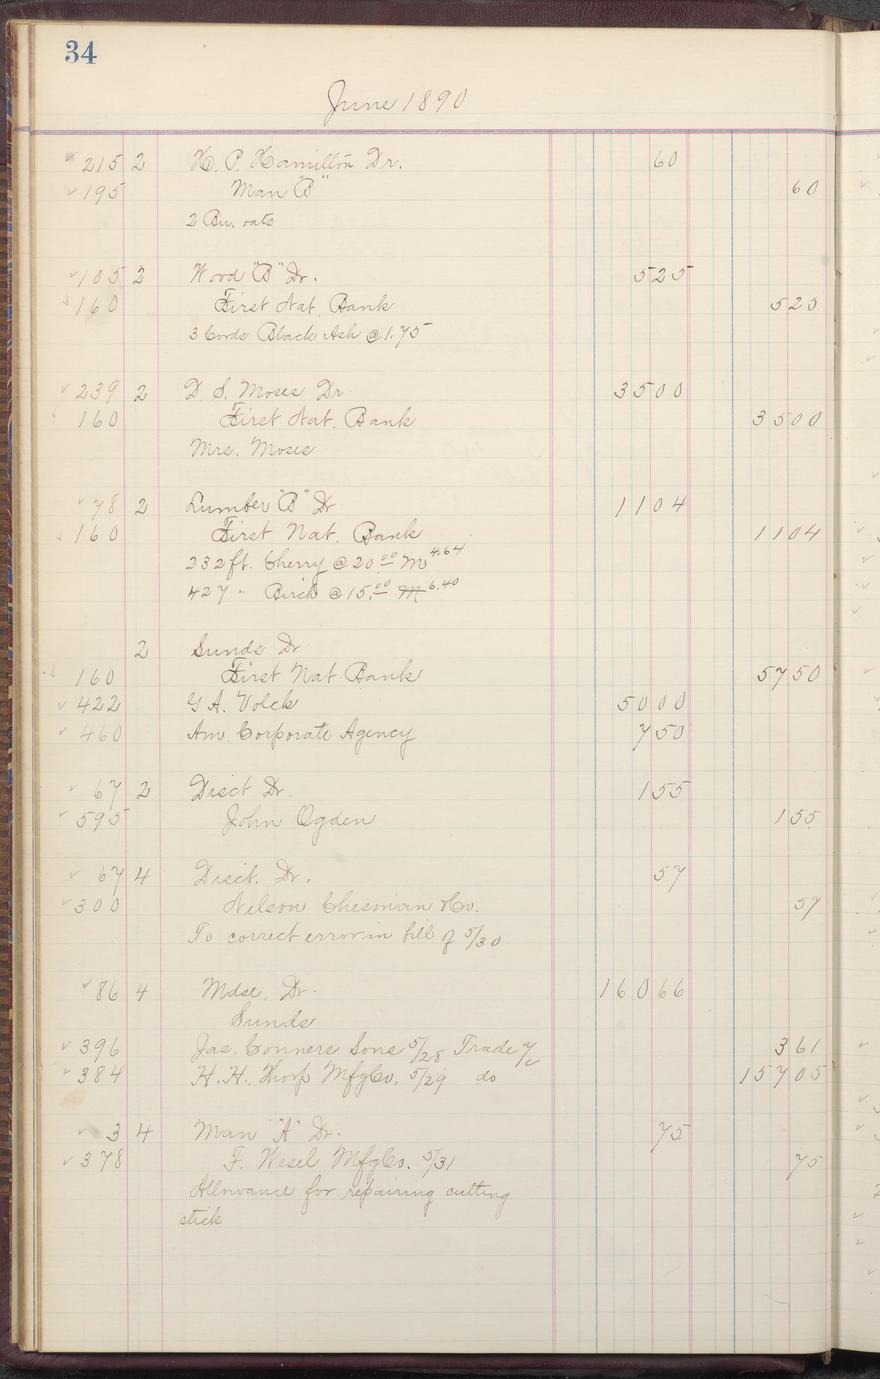 34
June 1890
215 2 H. P. Hamilton Dr. 60
195 Man "B" 60
2 Bu. oats
105 2 Wood "B" Dr. 525
160 First Nat. Bank 525
3 Cords Black Ash @ 1.75
239 2 D S. Moses Dr 3500
160 First Nat. Bank 3500
Mrs. Moses
78 2 Lumber "B" Dr 1104
160 First Nat. Bank 1104
232 ft. Cherry @ 20.00 M 4.64
427 " Birch @ 15.00 M 6.40
2 Sunds Dr
160 First Nat Bank 5750
422 G A. Volck 5000
460 Am Corporate Agency 750
67 2 Disct Dr. 155
595 John Ogden 155
67 4 Disct. Dr. 57
300 Nelson Chesman & Co. 57
To correct error in bill of 5/30
86 4 Mdse. Dr. 16066
Sunds
396 Jas. Conners Sons 5/28 Trade 361
384 H. H. Thorp Mfg Co. 5/29 do 15705
3 4 Man "A" Dr. 75
378 F. Wesel Mfg Co. 5/31 75
Allowance for repairing cutting
stick